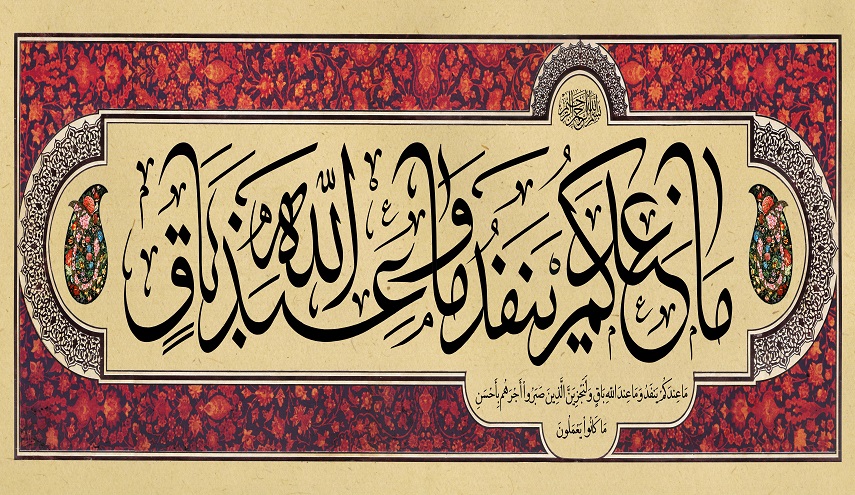 بسم الله الرحمن الرحيم
ما عندكم ينفد وما عند الله باق
مَا عِندَكُمْ يَنفَدُ وَمَا عِندَ اللهِ بَاقٍ وَلَنَجْزِيَنَّ الَّذِينَ صَبَرُوا أَجْرَهُم بِأَحْسَنِ
مَا كَانُوا يَعْمَلُونَ